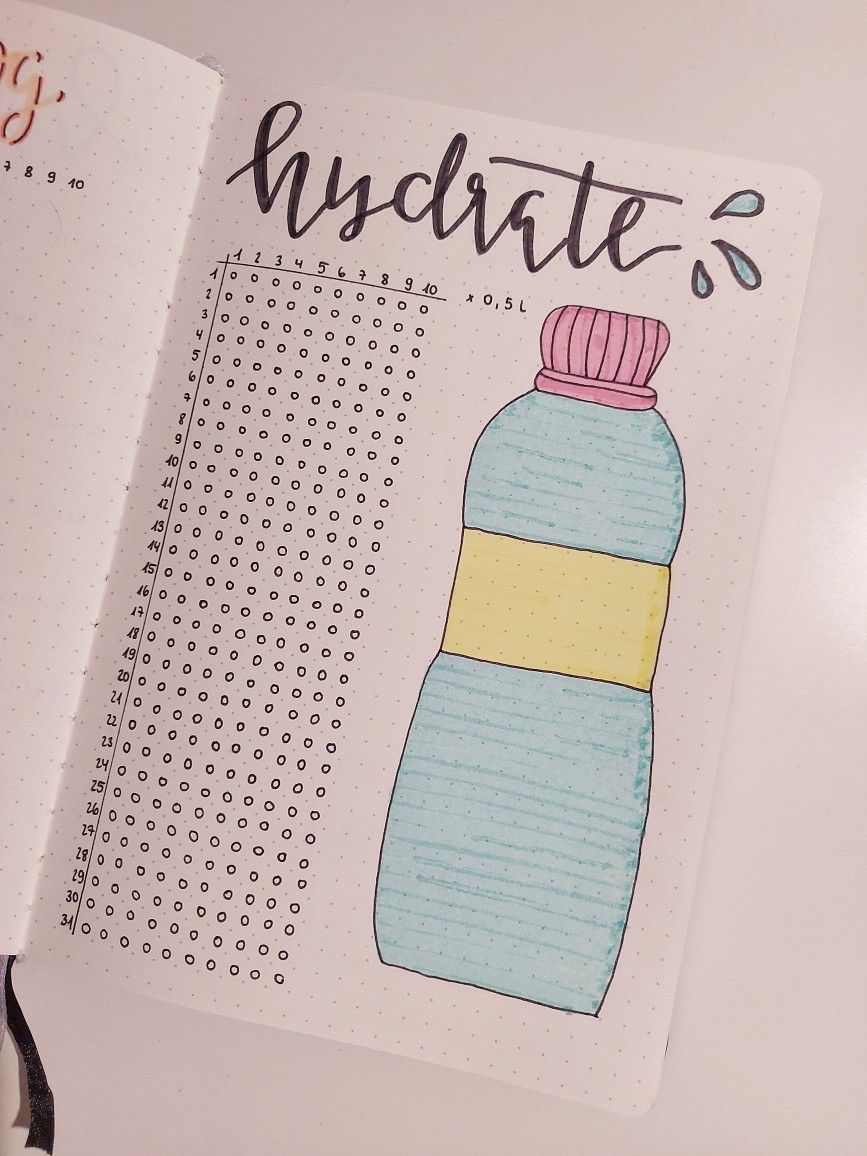 g.
7 8 9 10
hydrate
1 2 3 4 5 6 7 8 9 10 x 0,5 L
1
2
3
4
5
6
7
8
9
10
11
12
13
14
15
16
17
18
19
20
21
22
23
24
25
26
27
28
29
30
31